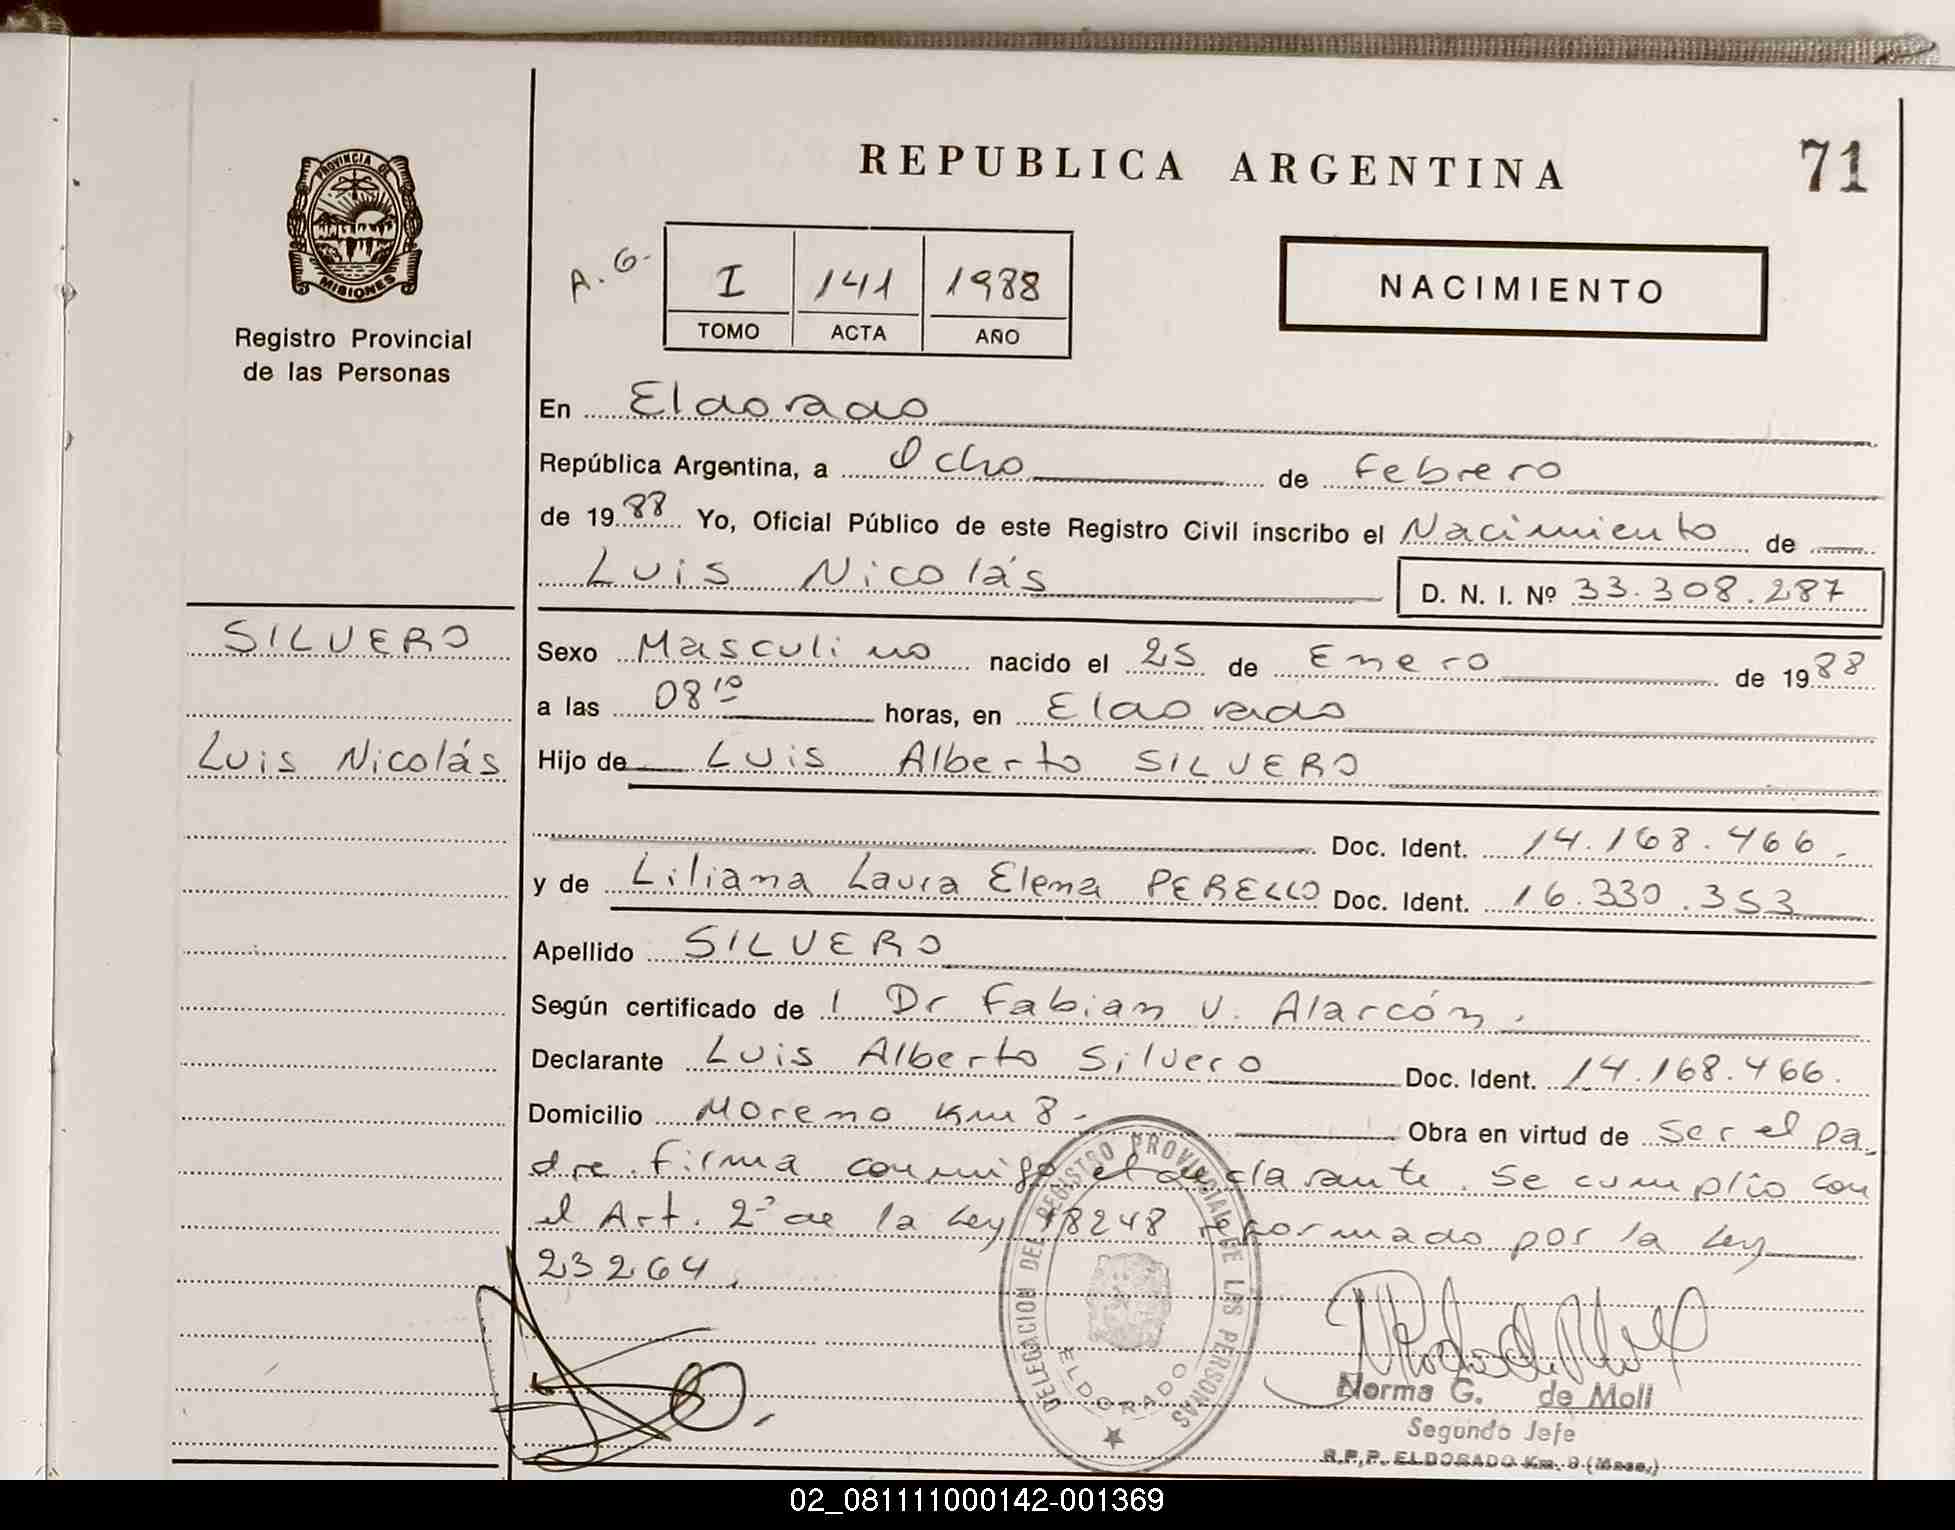 REPUBLICA ARGENTINA
71
PROVINCIA DE
MISIONES
Registro Provincial
de las Personas
A. G.
I 141 1988
TOMO ACTA AÑO
NACIMIENTO
En Eldorado
República Argentina, a Ocho de Febrero
de 1988 Yo, Oficial Público de este Registro Civil inscribo el Nacimiento de
Luis Nicolás D. N. I. Nº 33.308.287
SILVERO
Luis Nicolás
Sexo Masculino nacido el 25 de Enero de 1988
a las 08 10 horas, en Eldorado
Hijo de Luis Alberto SILVERO
Doc. Ident. 14.168.466.
y de Liliana Laura Elena PERELLO Doc. Ident. 16.330.353
Apellido SILVERO
Según certificado de 1 Dr Fabian V. Alarcón.
Declarante Luis Alberto Silvero Doc. Ident. 14.168.466.
Domicilio Moreno Km 8- Obra en virtud de ser el pa
dre. firma conmigo el declarante. Se cumplio con
el Art. 2º de la Ley 18248 reformado por la Ley
23264.
DELEGACION DEL REGISTRO PROVINCIAL DE LAS PERSONAS
ELDORADO
Norma G. de Moll
Segundo Jefe
R.P.P. ELDORADO Km. 9 (Mnes.)
02_081111000142-001369